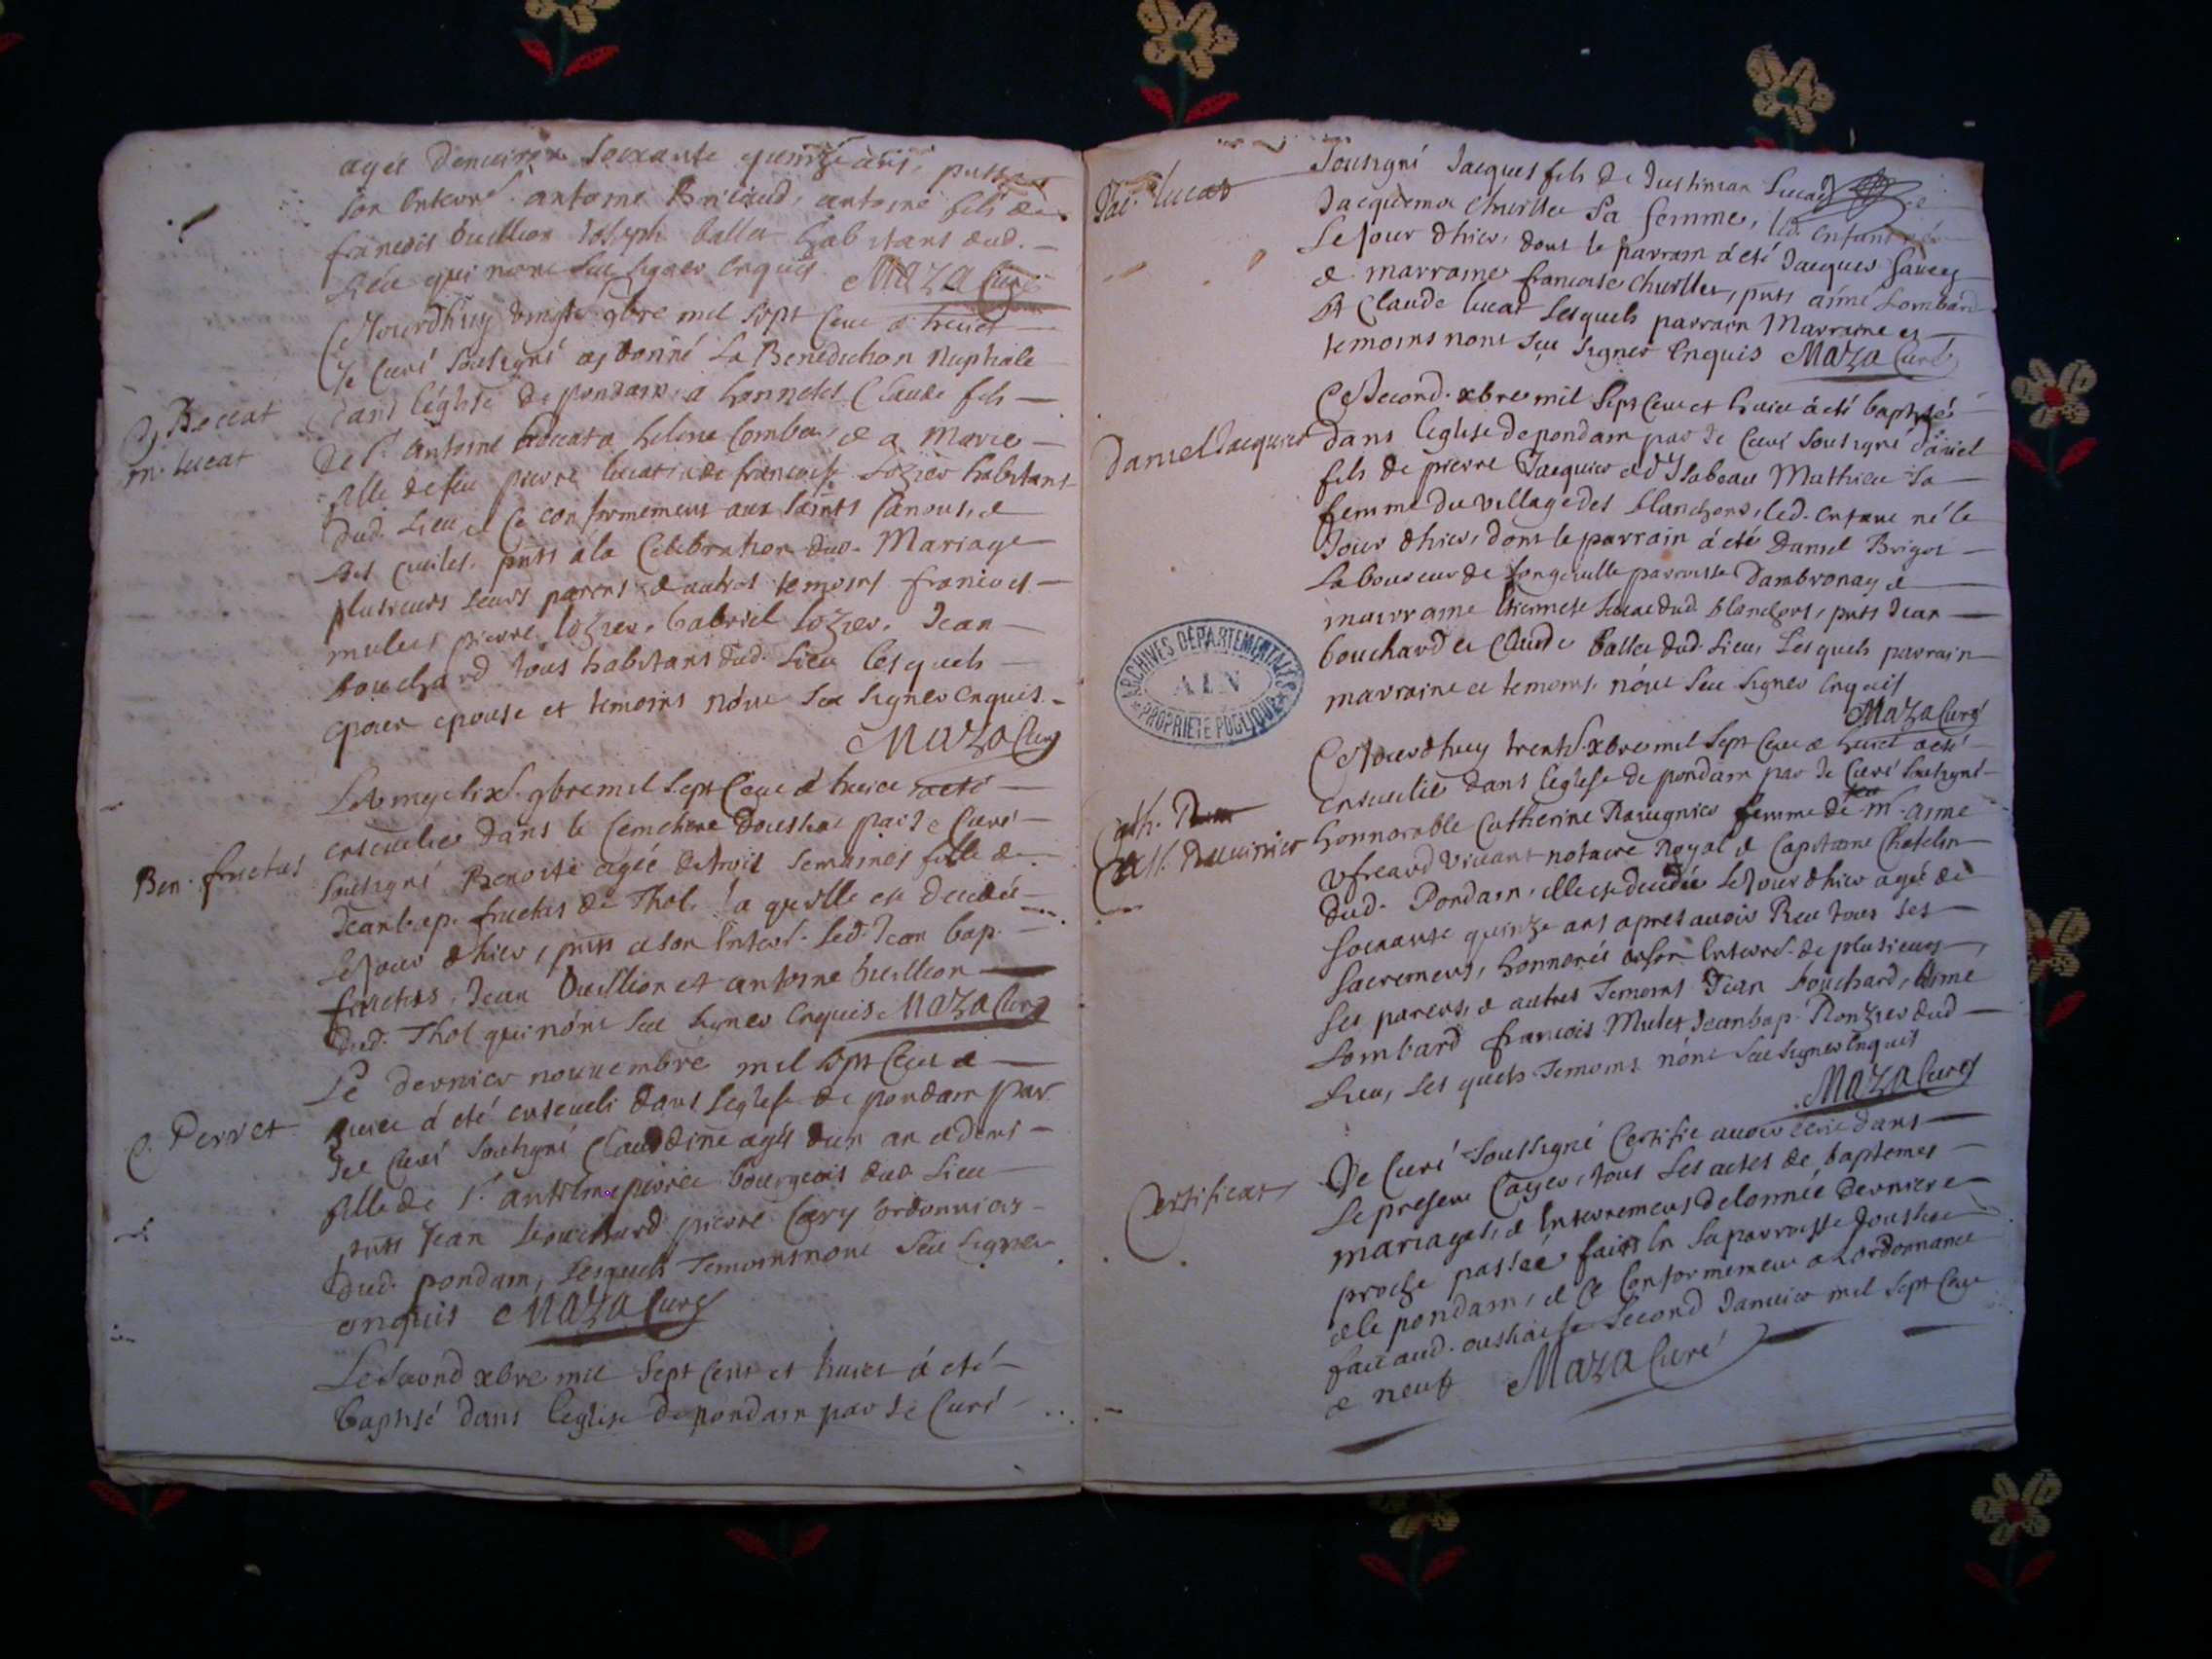 agée denuiron soixante quinze ans, puts a
son enterre. antoine Bricaud, antoine fils de
francois Buillion Joseph ballet habitans dud.
Lieu qui nont sceu signer enquis Maza Curé
Cejourdhuy vingt 9bre mil sept Cent & huict
Je Curé soubsigné ay donné La Benediction Nuptiale
dans leglise de pondain, a honnetes Claude fils
C. Boccat
m. lucat
De Sr. antoine boccat & helene Combet, & a Marie
fille de feu pierre lucat & de francoise Lozier habitans
dud. Lieu, & Ce conformement aux saints Canons, &
Loix ciuiles, puts a la Celebration dud. Mariage
plusieurs leurs parens & autres temoins francois
mulet, pierre lozier, Gabriel lozier, Jean
bouchard tous habitans dud. Lieu lesquels
epoux epouse et temoins nont sceu signer enquis.
Maza Curé
9bre mil sept Cent & huict a eté
enseuelie dans le Cemetiere doustiac par Je Curé
Ben. fructus
soubsigné Benoite agée de trois semaines fille de
Jean bap. fructus de Thol. la quelle est decedée
le jour dhier, puts a son Enterr. led. Jean bap.
fructus, Jean Buillion et antoine buillion
dud. Thol qui nont sceu signer enquis Maza Curé
Le dernier nouuembre mil sept Cent &
C. Perret
huict a eté enseueli dans leglise de pondain par
Je Curé soubsigné Claudine agée dun an & demi
fille de Sr. antelme bourgeois dud Lieu
puts Jean bouchard pierre Cary Cordonnier
dud. pondain, lesquels Temoins nont sceu signer
enquis Maza Curé
Le second xbre mil sept Cent et huict a eté
baptisé dans leglise de pondain par Je Curé
Jac. lucat
soubsigné Jacques fils de Justinian Lucat &
Jacquema Churllet sa femme, led. enfant né
le jour dhier, dont le parrain a eté Jacques
& marraine francoise Churllet, puts aimé Lombard
& Claude lucat lesquels parrain Marraine et
temoins nont sceu signer enquis Maza Curé
Ce second xbre mil sept Cent et huict a eté baptisé
Daniel Jacquier
dans leglise de pondain par Je Curé soubsigné daniel
fils de pierre Jacquier & dYsabeau Mathieu sa
femme du village des blanchons, led. enfant né le
Jour dhier, dont le parrain a eté Daniel Brigot
Laboureur de longeville parroisse Dambronay &
marraine dud. blanchons, puts Jean
bouchard et Claude ballet dud. Lieu, Lesquels parrain
marraine et temoins. nont sceu signer enquis
Maza Curé
Cejourdhuy trente xbre mil sept Cent & huict a eté
enseuelie dans leglise de pondain par Je Curé soubsigné
Cath.
Cath. Rauinier
honnorable Catherine femme de feu Mr. aimé
viuant notaire Royal & Capitaine Chatelain
dud. Pondain, elle est decedée le Jour dhier agée de
soixante quinze ans apres auoir Receu tous ses
sacremens, honnorée en son Enterre. de plusieurs
ses parens, & autres Temoins Jean bouchard, Aimé
Lombard francois Mulet Jean bap. Ronzier dud
Lieu, lesquels Temoins nont sceu signer enquis
Maza Curé
Certificat
Je Curé soussigné Certifie auoir ecrit dans
Le present Cayer, tous les actes de baptemes
mariages, & Enterremens de lannée derniere
proche passée faits En la parroisse doustiac
& le pondain, & Ce Conformement a Lordonnance
fait aud. oustiac le second Januier mil sept Cent
& neuf Maza Curé
ARCHIVES DÉPARTEMENTALES
AIN
PROPRIÉTÉ PUBLIQUE